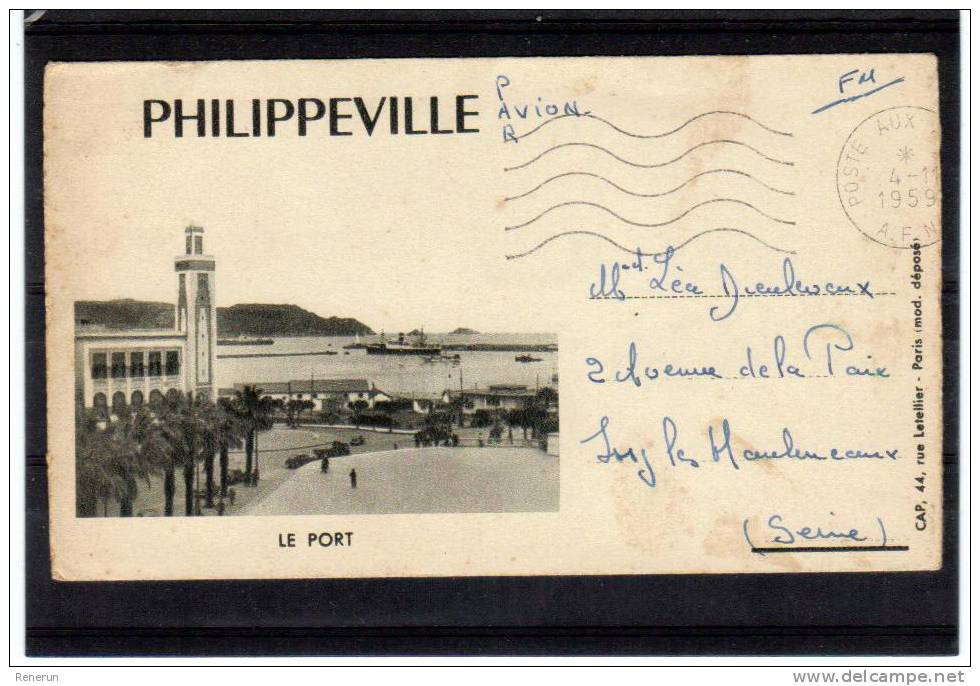 PHILIPPEVILLE
PAR
AVION
FM
POSTE AUX
*
4-11
1959
A.F.N
Léa
2 Avenue de la Paix
Issy les Moulineaux
(Seine)
LE PORT
CAP, 44, rue Letellier - Paris (mod. déposé)
Renerun
delcampe.net